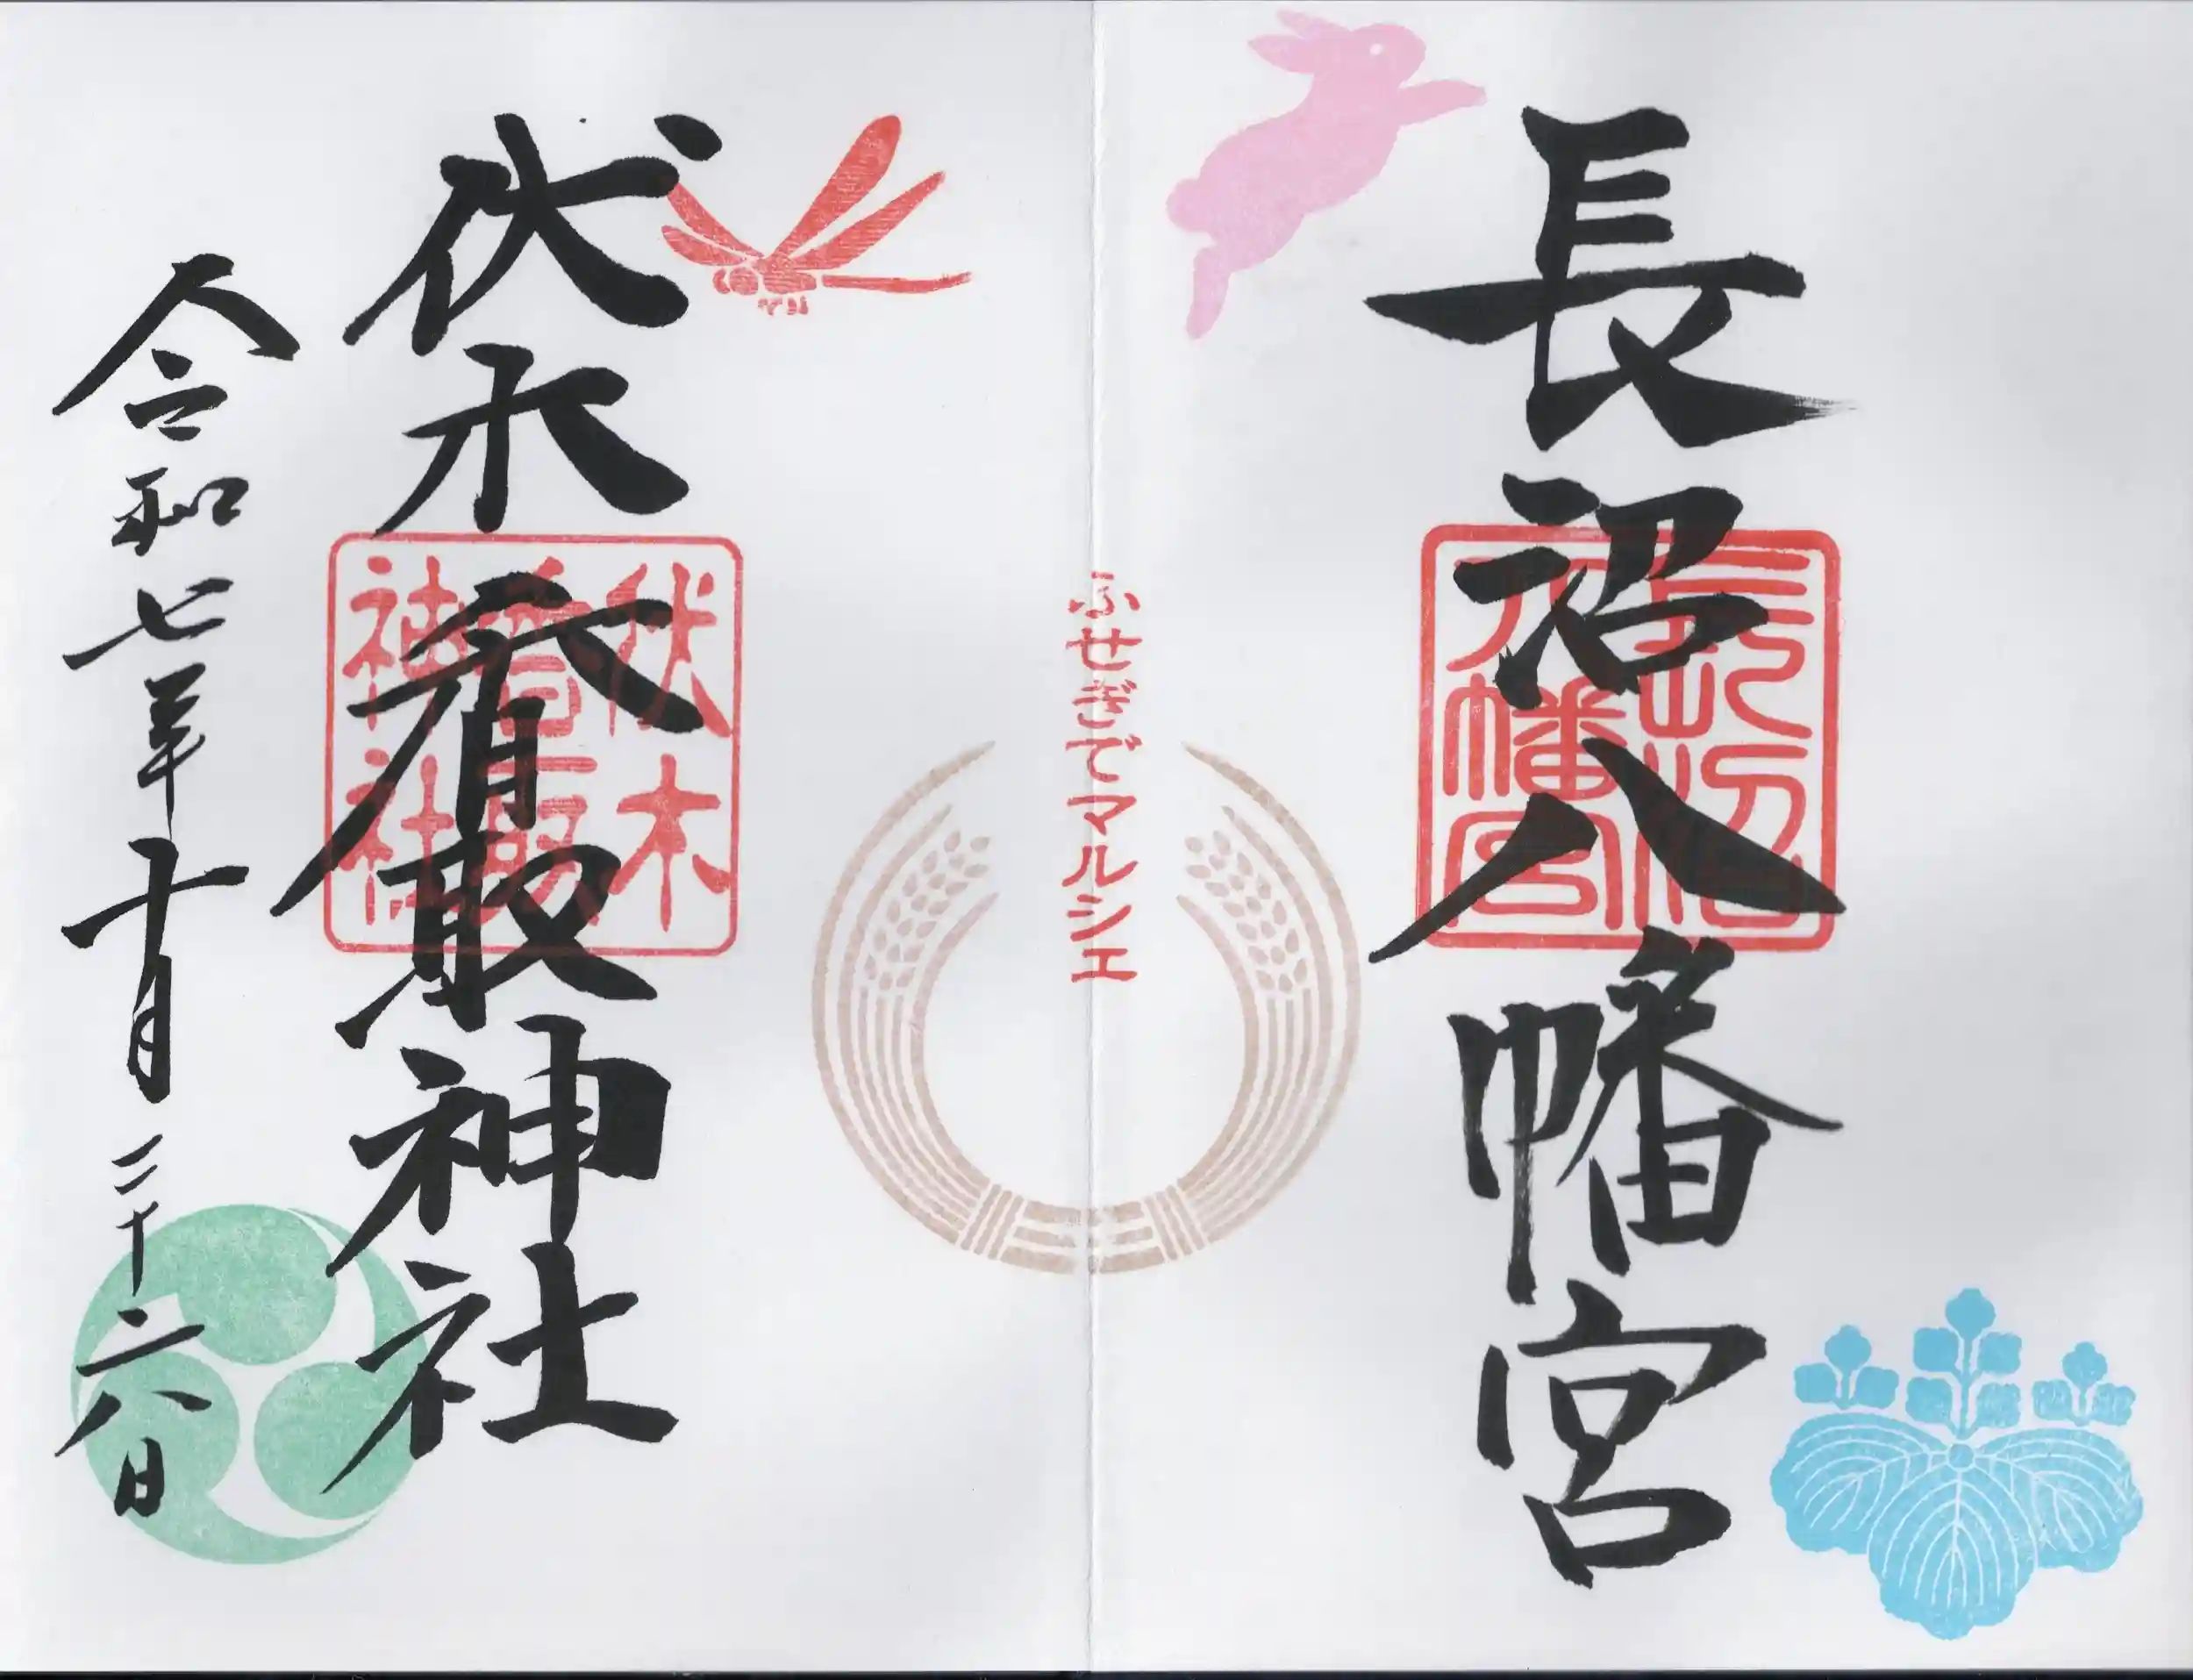 長沼八幡宮
長沼八幡宮
ふせぎでマルシェ
伏木香取神社
伏木香取神社
令和七年十月二十六日